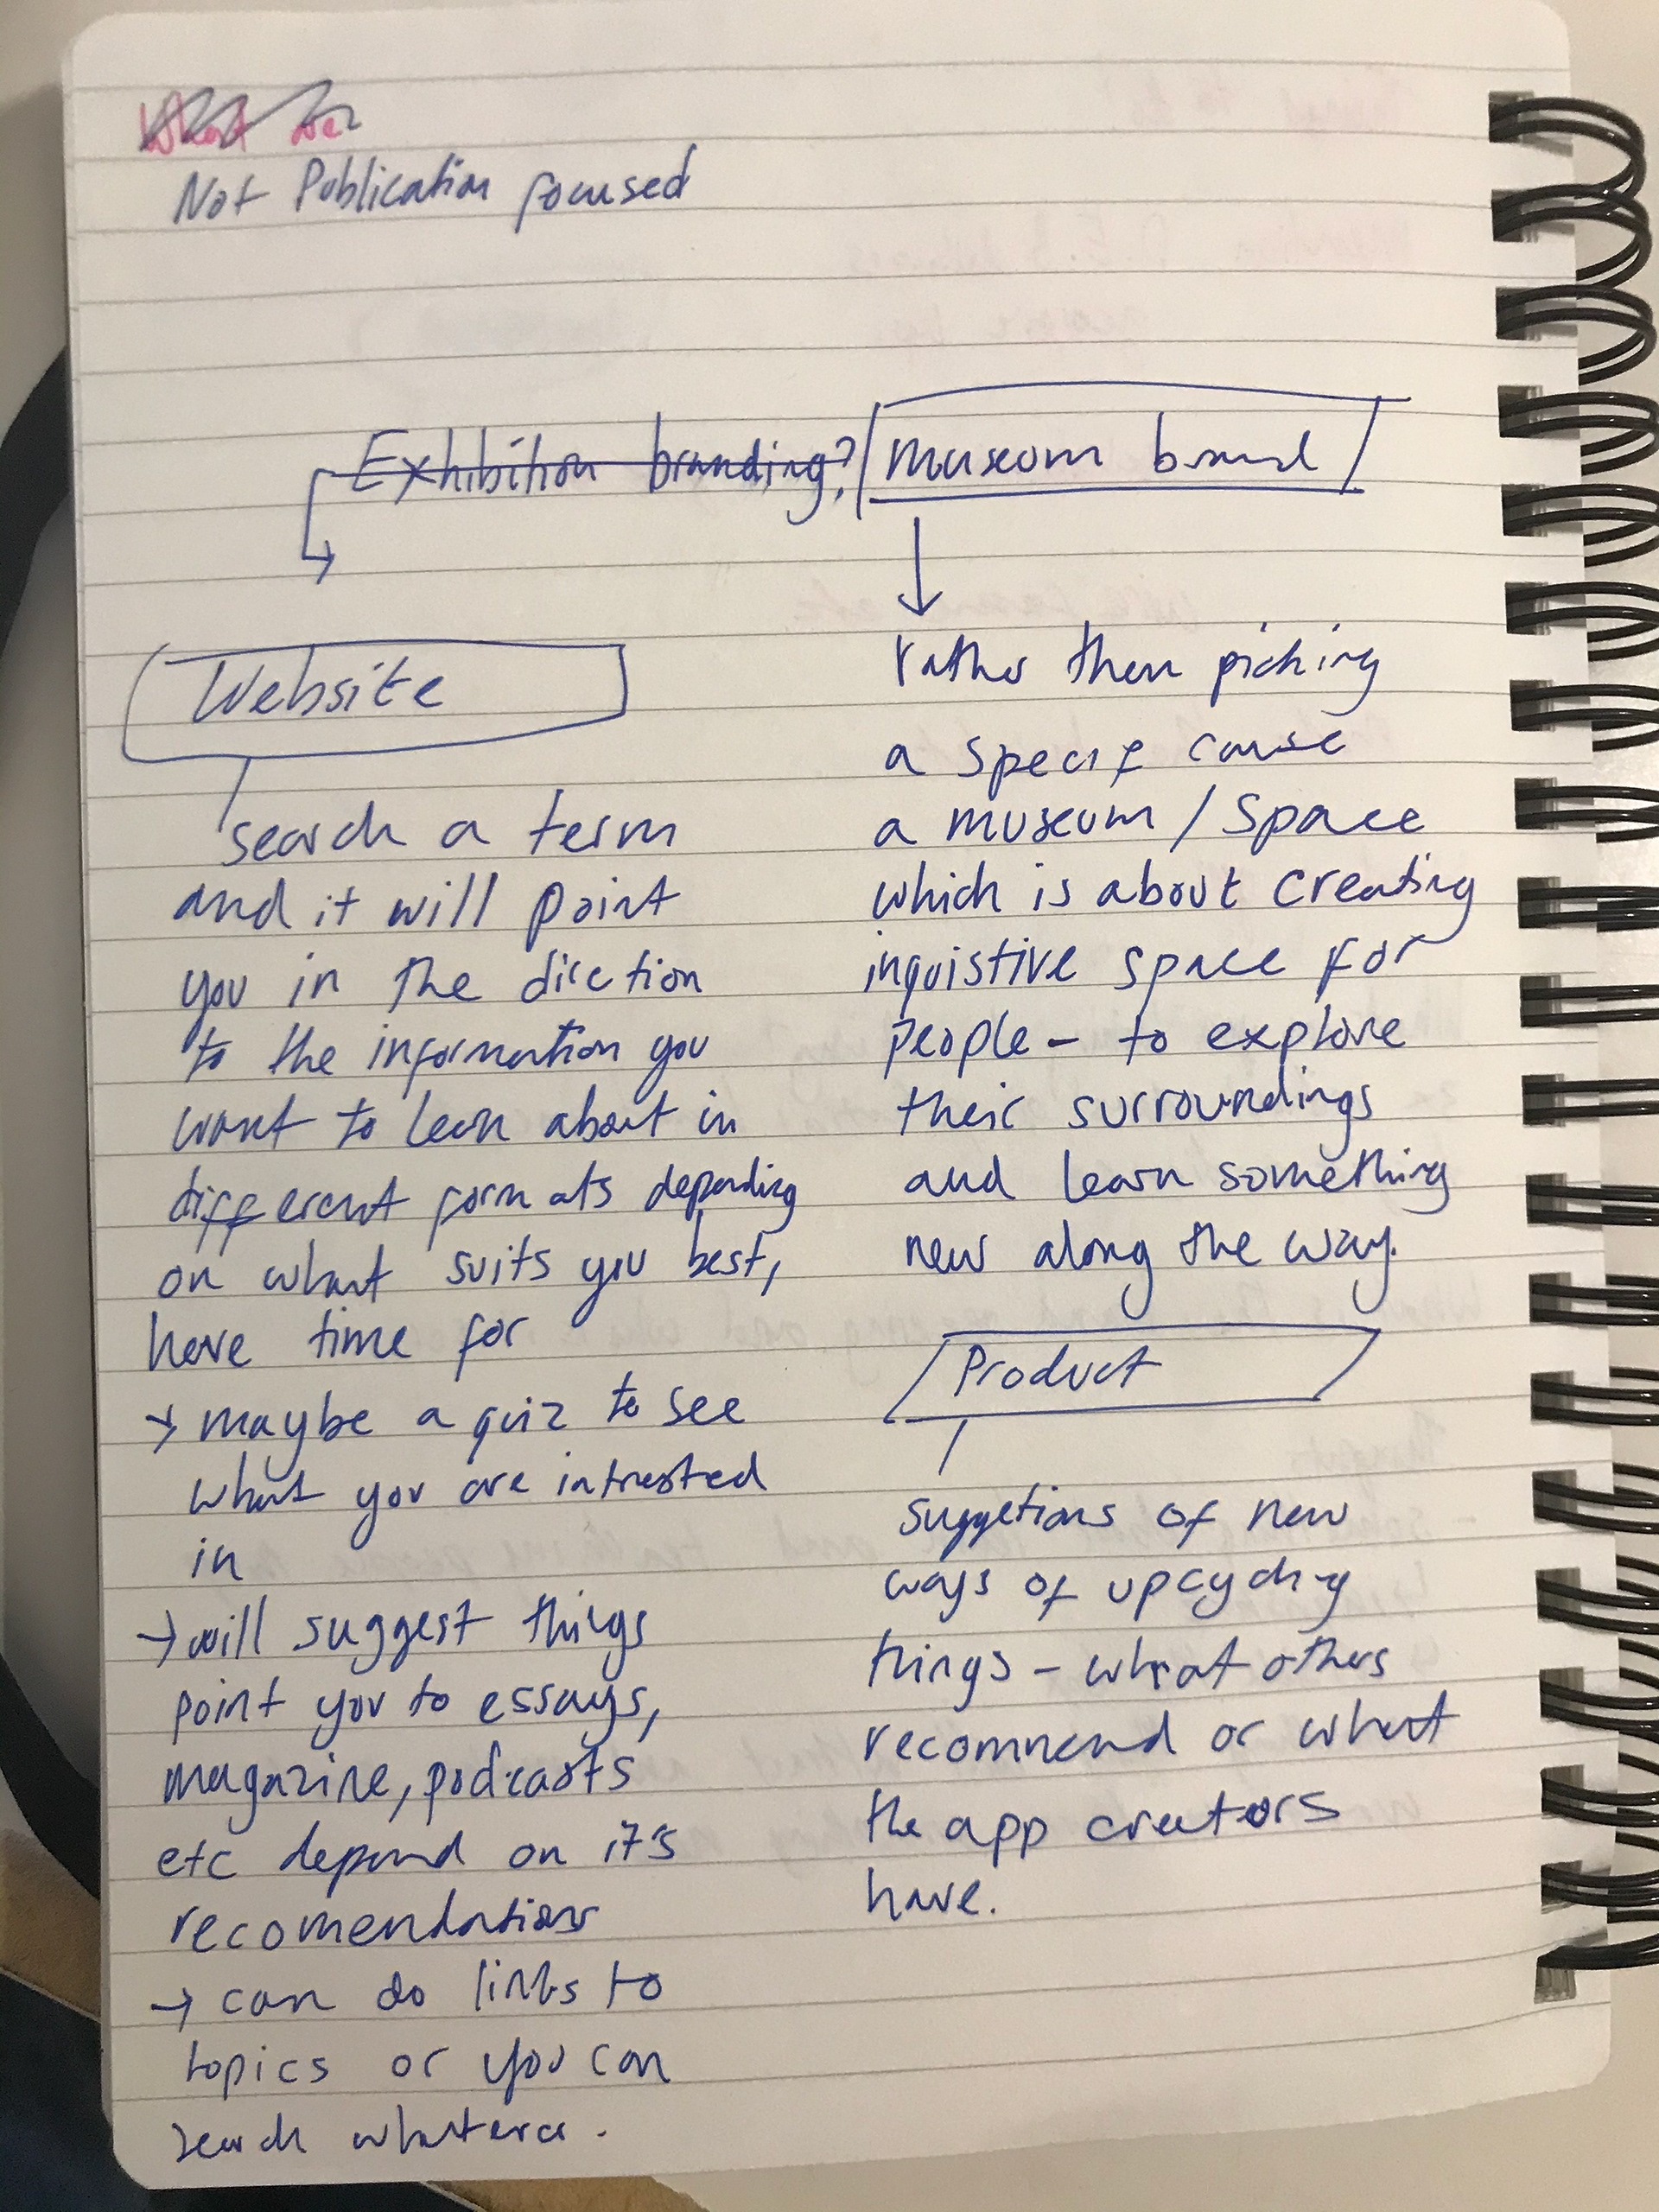 What we
Not Publication focused
Exhibition branding? museum brand
Website
search a term
and it will point
you in the dirction
to the information you
want to learn about in
different formats depending
on what suits you best,
have time for
→ maybe a quiz to see
what you are intrested
in
→ will suggest things
point you to essays,
magazine, podcasts
etc depend on it's
recomendations
→ can do links to
topics or you can
search whatever.
rather then picking
a specif cause
a museum / space
which is about creating
inquistive space for
people - to explore
their surroundings
and learn something
new along the way.
Product
suggetions of new
ways of upcycling
things - what others
recommend or what
the app creators
have.